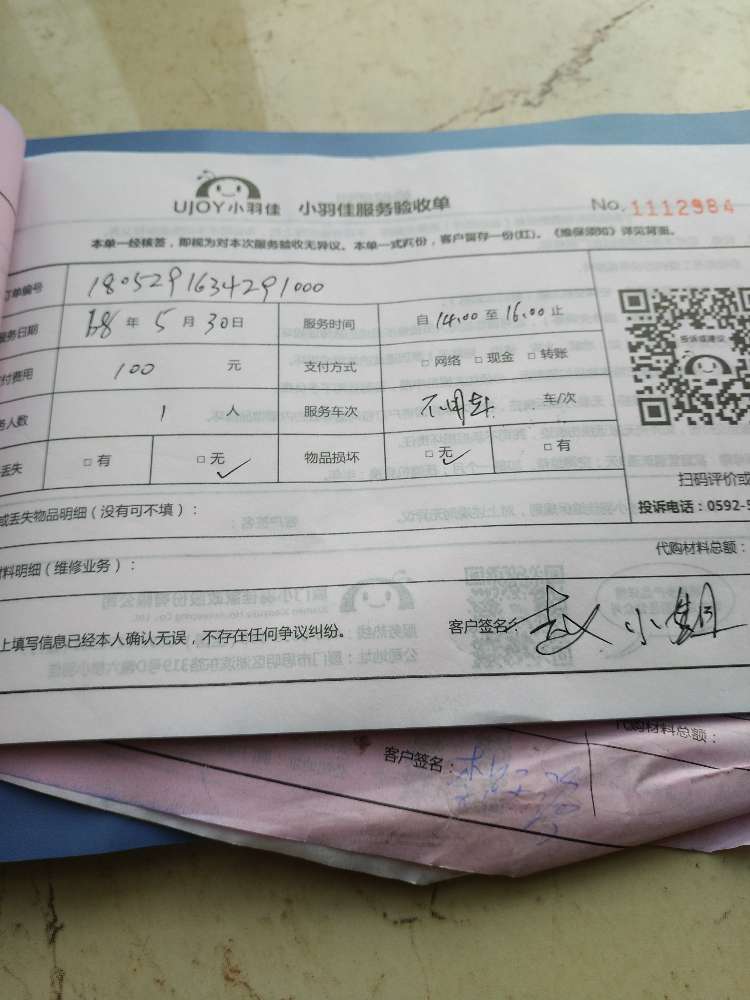 UJOY小羽佳 小羽佳服务验收单 No. 1112984
本单一经核签，即视为对本次服务验收无异议。本单一式两份，客户留存一份(红)。《维保须知》详见背面。
订单编号 1805291634291000
服务日期 年 5 月 30 日 服务时间 自 14:00 至 16:00 止
付费用 100 元 支付方式 □ 网络 □ 现金 □ 转账
务人数 1 人 服务车次 车/次
丢失 □ 有 □ 无 ✓ 物品损坏 □ 无 ✓ □ 有
投诉或建议
扫码评价或
投诉电话：0592-5
或丢失物品明细（没有可不填）：
材料明细（维修业务）： 代购材料总额：
上填写信息已经本人确认无误，不存在任何争议纠纷。 客户签名：赵小娟
代购材料总额：
客户签名：